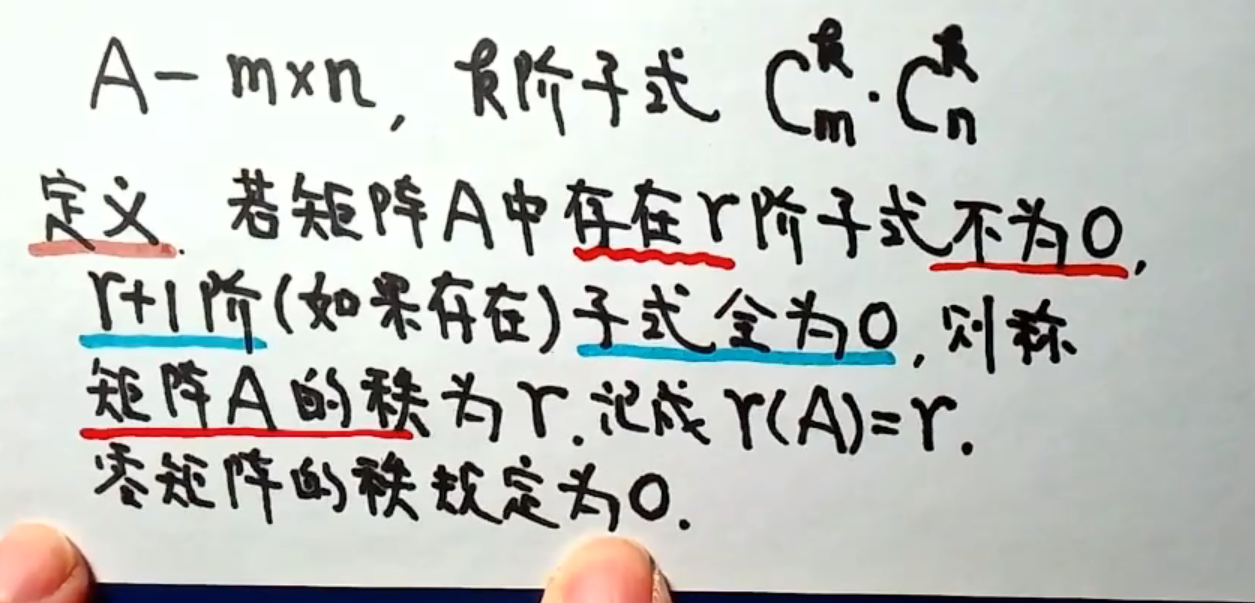 A — m×n, k阶子式 C_m^k · C_n^k
定义. 若矩阵A中存在r阶子式不为0,
r+1阶(如果存在)子式全为0, 则称
矩阵A的秩为r. 记成 r(A)=r.
零矩阵的秩规定为0.